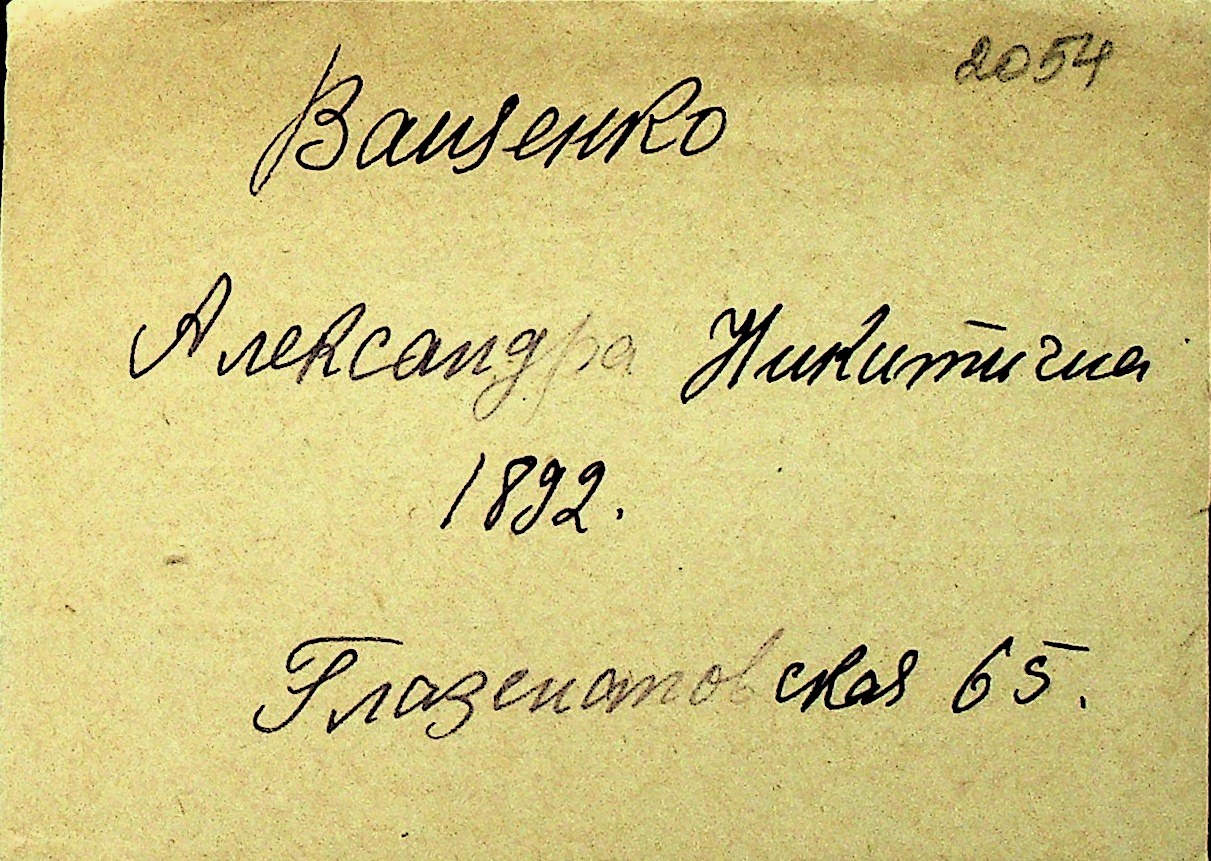 2054
Ващенко
Александра Никитична
1892.
Глазенатовская 65.